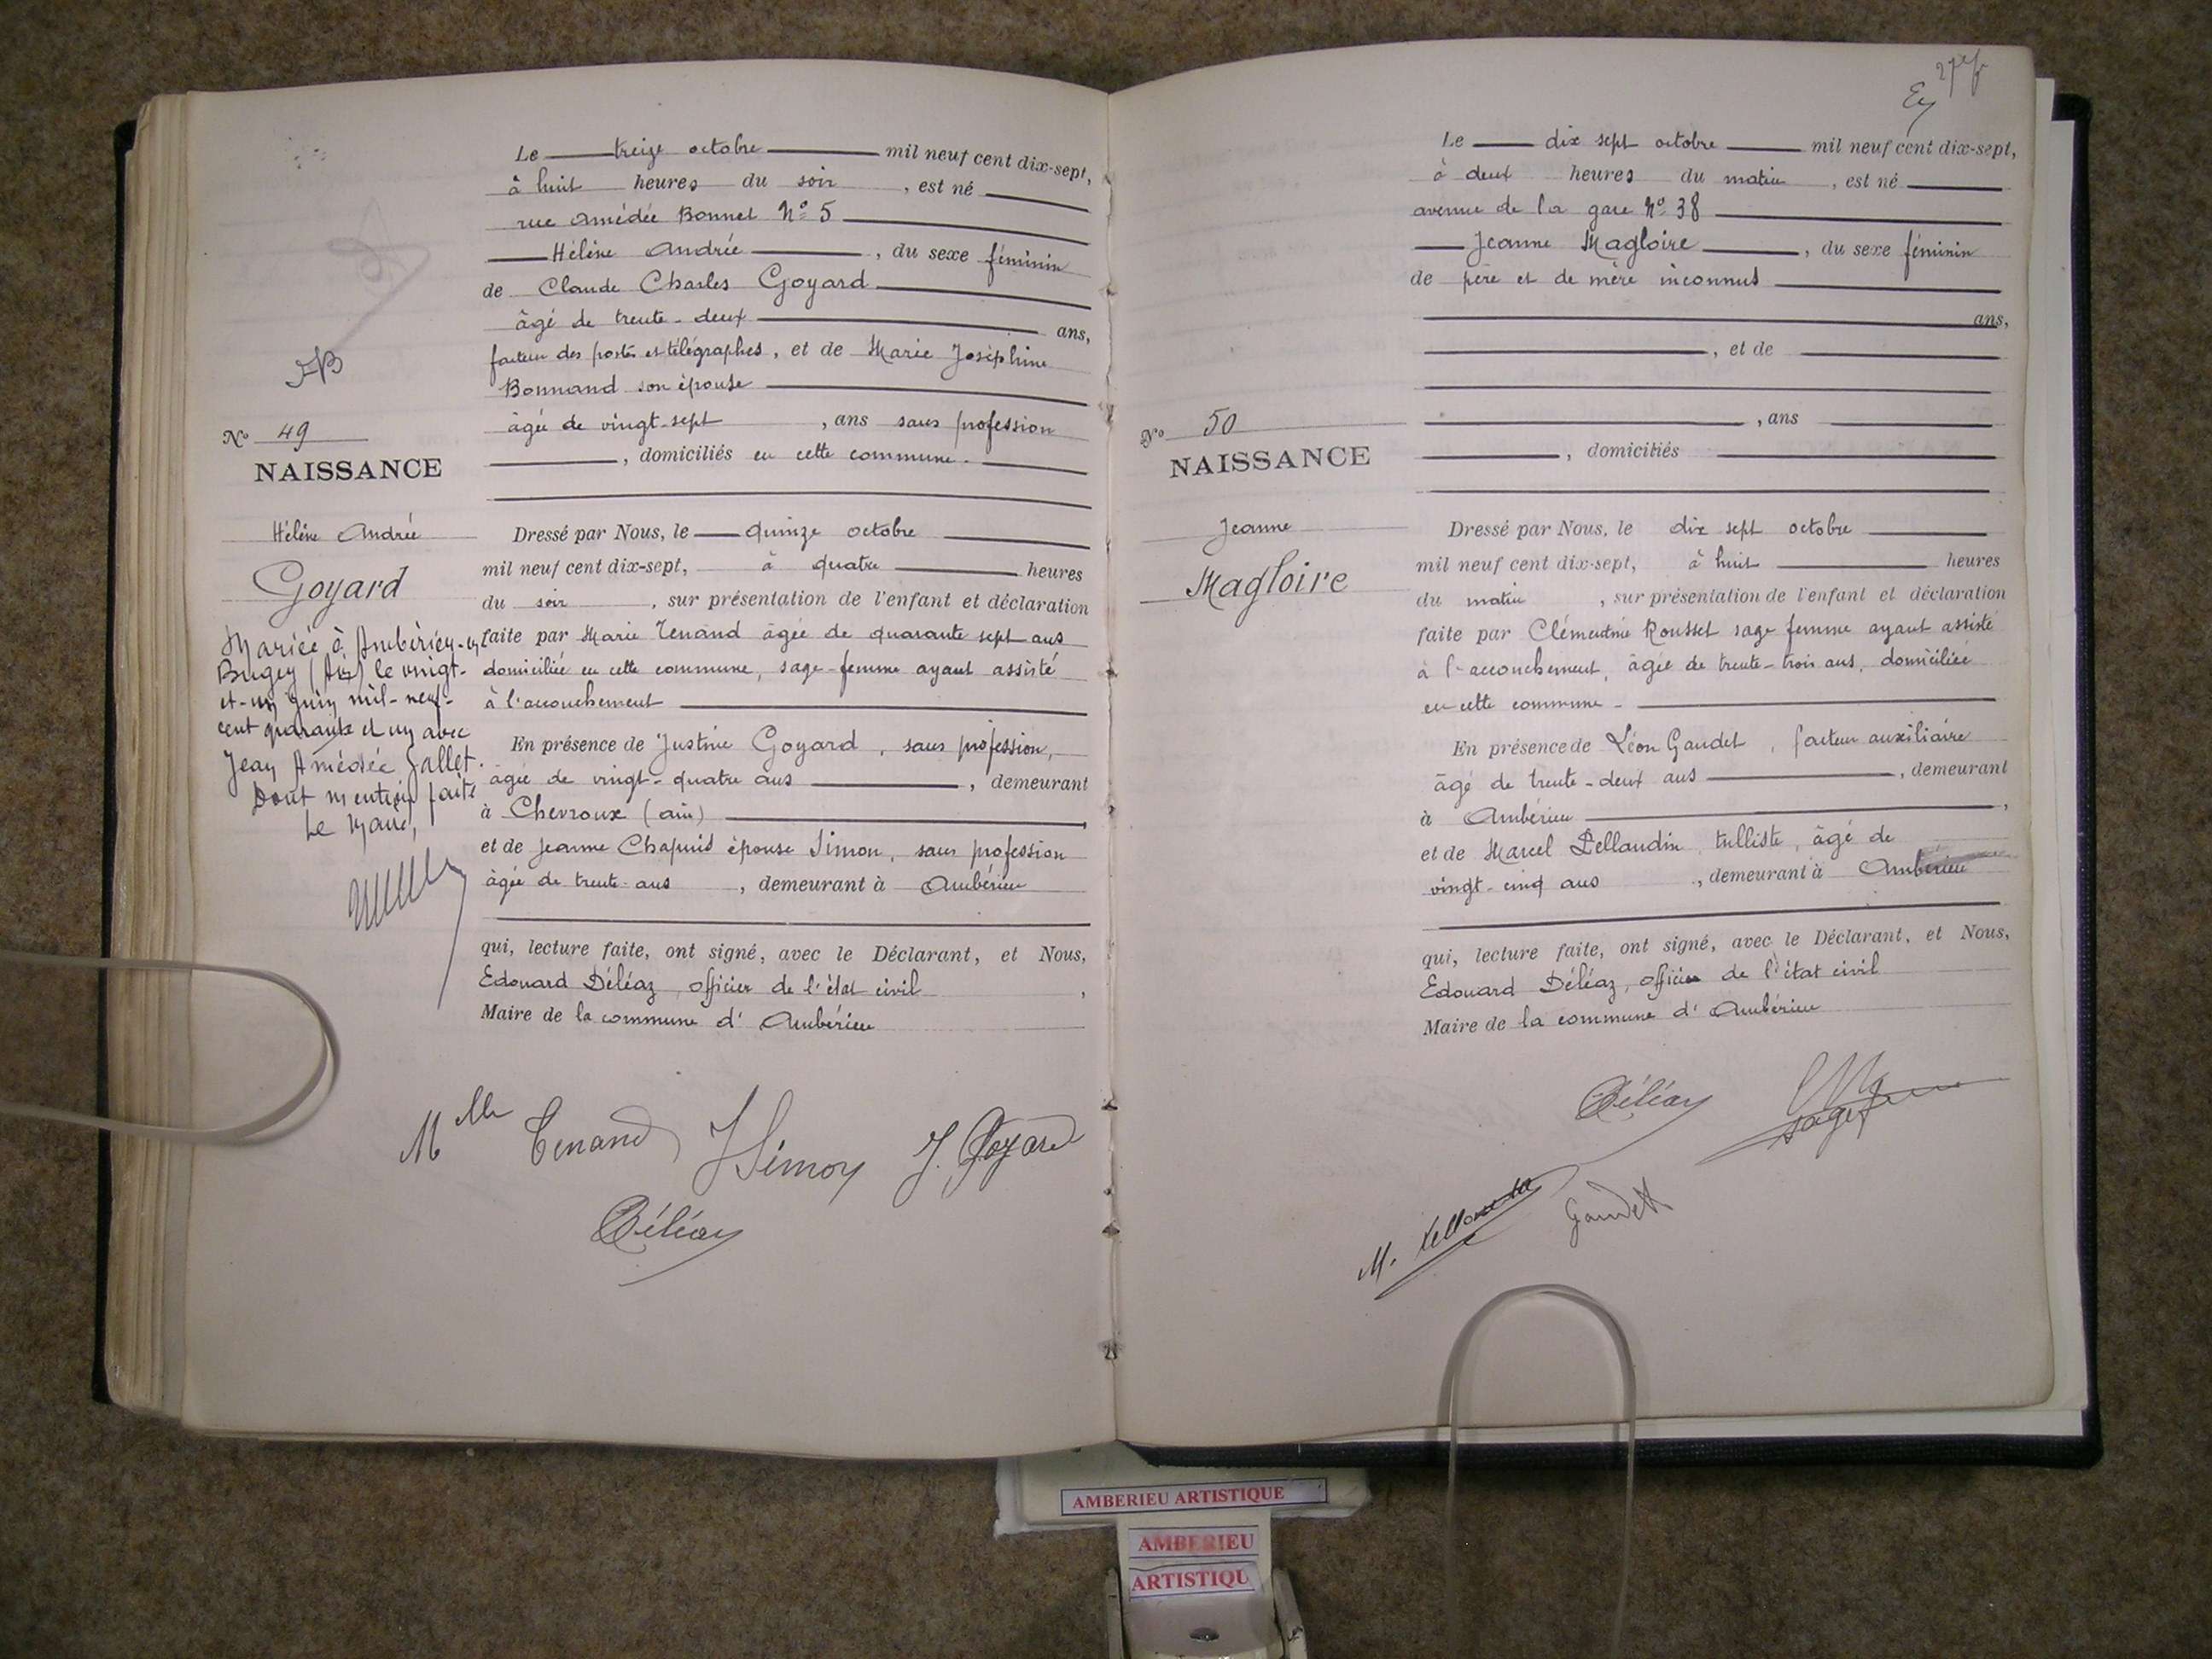 Le treize octobre mil neuf cent dix-sept,
à huit heures du soir, est né
rue Amédée Bonnet N° 5
Hélène Andrée, du sexe féminin
de Claude Charles Goyard
âgé de trente-deux ans,
facteur des postes et télégraphes, et de Marie Joséphine
Bonnand son épouse
âgée de vingt-sept, ans sans profession
, domiciliés en cette commune.
Dressé par Nous, le quinze octobre
mil neuf cent dix-sept, à quatre heures
du soir, sur présentation de l'enfant et déclaration
faite par Marie Tenand âgée de quarante sept ans
domiciliée en cette commune, sage-femme ayant assisté
à l'accouchement
En présence de Justine Goyard, sans profession,
âgée de vingt-quatre ans, demeurant
à Chevroux (ain)
et de Jeanne Chapuis épouse Simon, sans profession
âgée de trente ans, demeurant à Ambérieu
qui, lecture faite, ont signé, avec le Déclarant, et Nous,
Edouard Déléaz, officier de l'état civil,
Maire de la commune d'Ambérieu
Mlle Tenand J Simon J. Goyard
Déléaz
N° 49
NAISSANCE
Hélène Andrée
Goyard
Mariée à Ambérieu-en
Bugey (Ain) le vingt-
et-un juin mil-neuf-
cent quarante et un avec
Jean Amédée Jallet.
Dont mention faite
Le Maire,
27
Le dix sept octobre mil neuf cent dix-sept,
à deux heures du matin, est né
avenue de la gare N° 38
Jeanne Magloire, du sexe féminin
de père et de mère inconnus
ans,
, et de
, ans
, domiciliés
Dressé par Nous, le dix sept octobre
mil neuf cent dix-sept, à huit heures
du matin, sur présentation de l'enfant et déclaration
faite par Clémentine Rousset sage femme ayant assisté
à l'accouchement, âgée de trente-trois ans, domiciliée
en cette commune
En présence de Léon Gaudet, facteur auxiliaire
âgé de trente-deux ans, demeurant
à Ambérieu,
et de Marcel Pellaudin, tulliste, âgé de
vingt-cinq ans, demeurant à Ambérieu
qui, lecture faite, ont signé, avec le Déclarant, et Nous,
Edouard Déléaz, officier de l'état civil
Maire de la commune d'Ambérieu
Déléaz
Gaudet
N° 50
NAISSANCE
Jeanne
Magloire
AMBERIEU ARTISTIQUE
AMBERIEU
ARTISTIQU